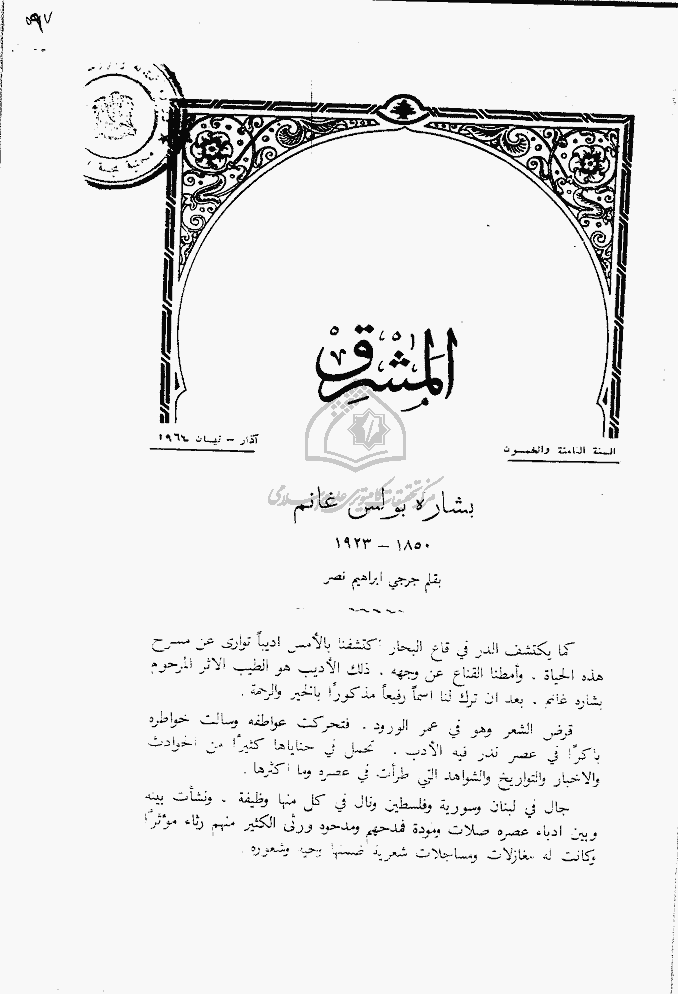 ٥٩٧
المشرق
السنة الثامنة والخمسون
آذار - نيسان ١٩٦٤
بشاره بولس غانم
١٨٥٠ - ١٩٢٣
بقلم جرجي ابراهيم نصر
كما يكتشف الدر في قاع البحار اكتشفنا بالأمس اديباً توارى عن مسرح
هذه الحياة . وأمطنا القناع عن وجهه . ذلك الأديب هو الطيب الاثر المرحوم
بشاره غانم . بعد ان ترك لنا اسماً رفيعاً مذكوراً بالخير والرحمة .
قرض الشعر وهو في عمر الورود . فتحركت عواطفه وسالت خواطره
باكراً في عصر ندر فيه الأدب . تحمل في حناياها كثيراً من الحوادث
والاخبار والتواريخ والشواهد التي طرأت في عصره وما اكثرها .
جال في لبنان وسورية وفلسطين ونال في كل منها وظيفة . ونشأت بينه
وبين ادباء عصره صلات ومودة فمدحهم ومدحوه ورثى الكثير منهم رثاء مؤثراً
وكانت له مغازلات ومساجلات شعرية ضمنها وحيه وشعوره .